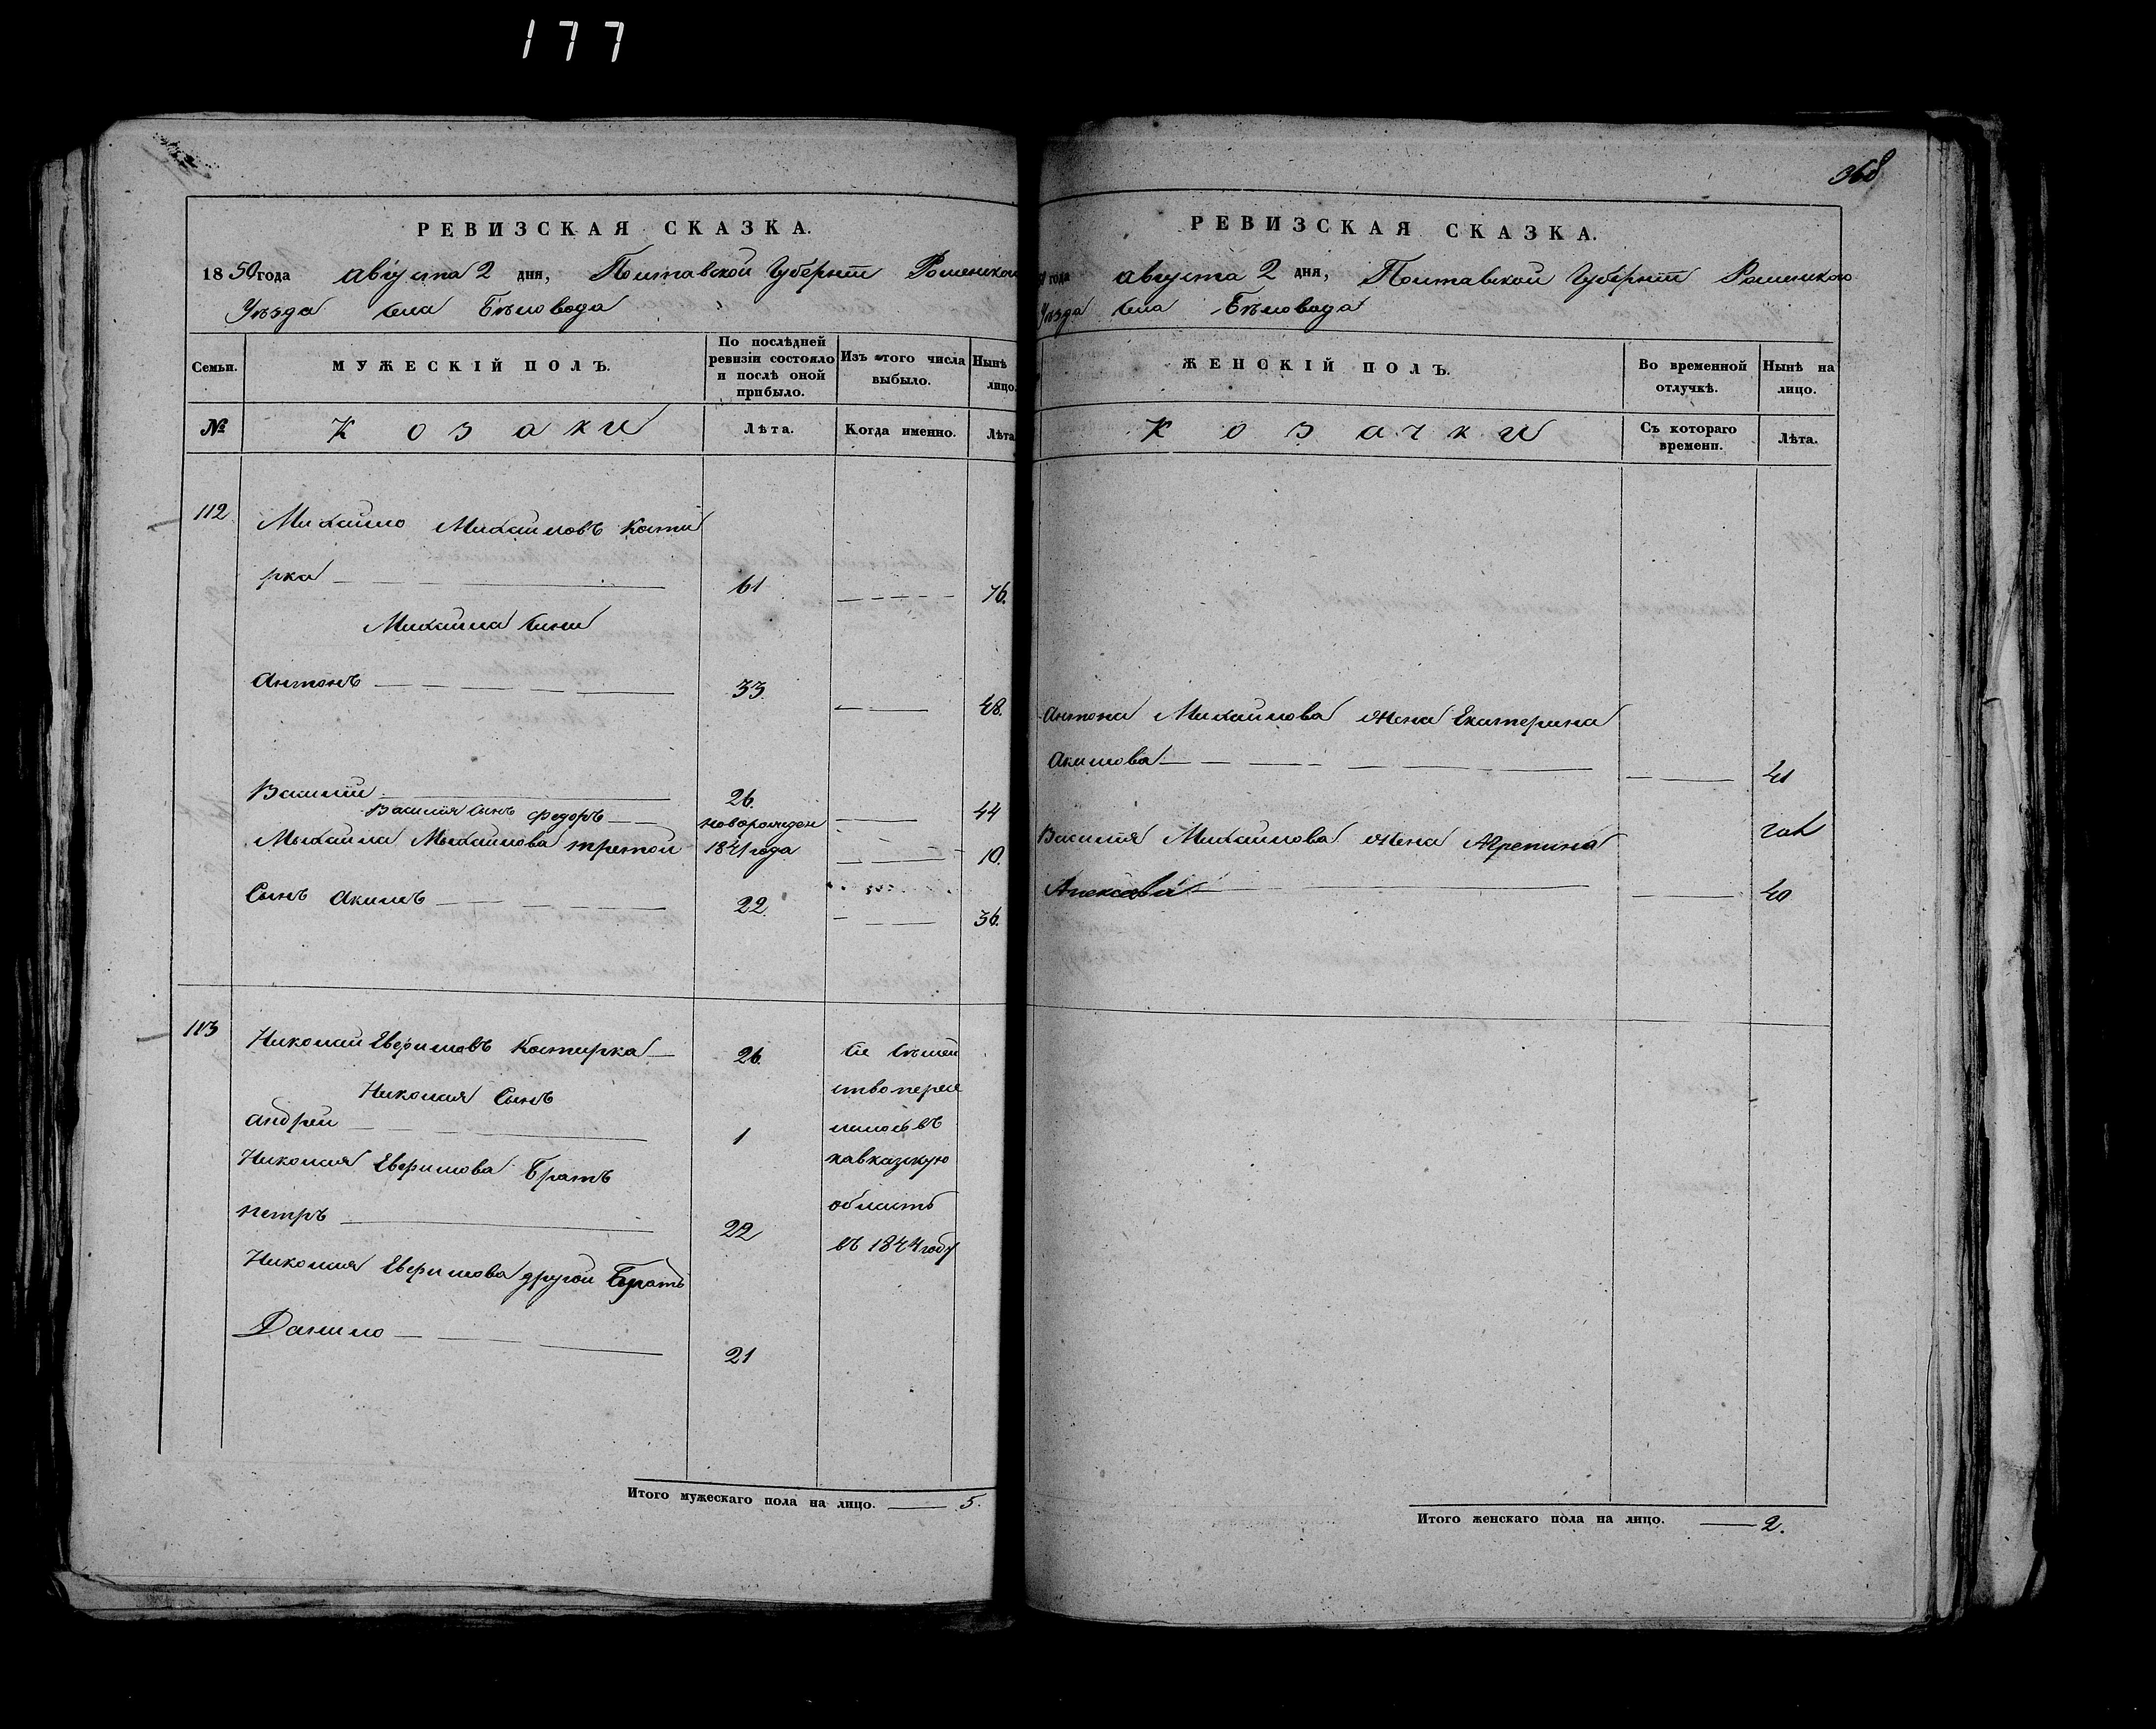 177
368
РЕВИЗСКАЯ СКАЗКА.
1850 года августа 2 дня, Полтавской Губернiи Роменского
Уѣзда села Бѣловода
Семьи.
МУЖЕСКІЙ ПОЛЪ.
По послѣдней ревизіи состояло и послѣ оной прибыло.
Изъ этого числа выбыло.
Нынѣ
лицо.
№
Козаки
Лѣта.
Когда именно.
Лѣта
112
Михайло Михайловъ Кости
рка
61
76.
Михайла сини
Антонъ
33.
48.
Василiй
26.
44
Василiя Сынъ Федоръ
новорожден
Михайла Михайлова третой
1841 года
10.
Сынъ Акимъ
22.
36.
113
Николай Евфимовъ Костирка
26.
Сіе Сѣмей
Николая Сынъ
ство пересе
Андрей
1
лилось въ
Николая Евфимова Братъ
кавказскую
Петръ
22
область
въ 1844 году
Николая Евфимова другой Братъ
Данило
21
Итого мужескаго пола на лицо. 5.
РЕВИЗСКАЯ СКАЗКА.
года августа 2 дня, Полтавской Губернiи Роменского
Уѣзда села Бѣловода
ЖЕНСКІЙ ПОЛЪ.
Во временной отлучкѣ.
Нынѣ на лицо.
Козачки
Съ котораго времени.
Лѣта.
Антона Михайлова жена Екатерина
Акимова
41
Василiя Михайлова жена Агрепина
Алексѣева
40
Итого женскаго пола на лицо. 2.